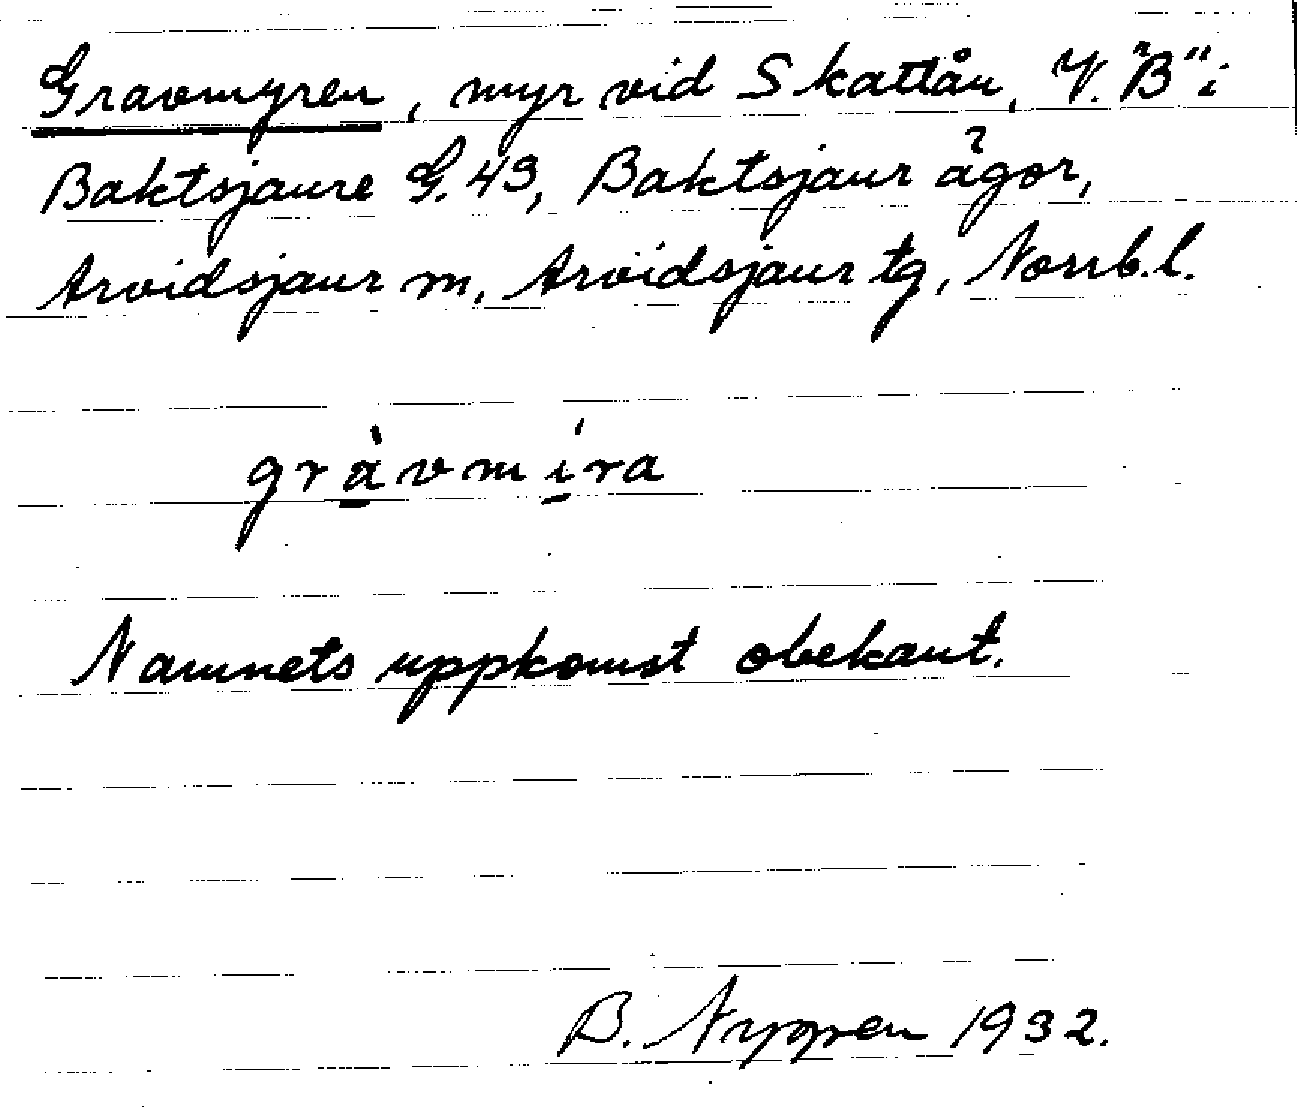 Gravmyren, myr vid Skattån, V. "B" i
Baktsjaure G. 43, Baktsjaur ägor,
Arvidsjaur m, Arvidsjaur tg, Norrb.l.
gràvmíra
Namnets uppkomst obekant.
B. Nygren 1932.